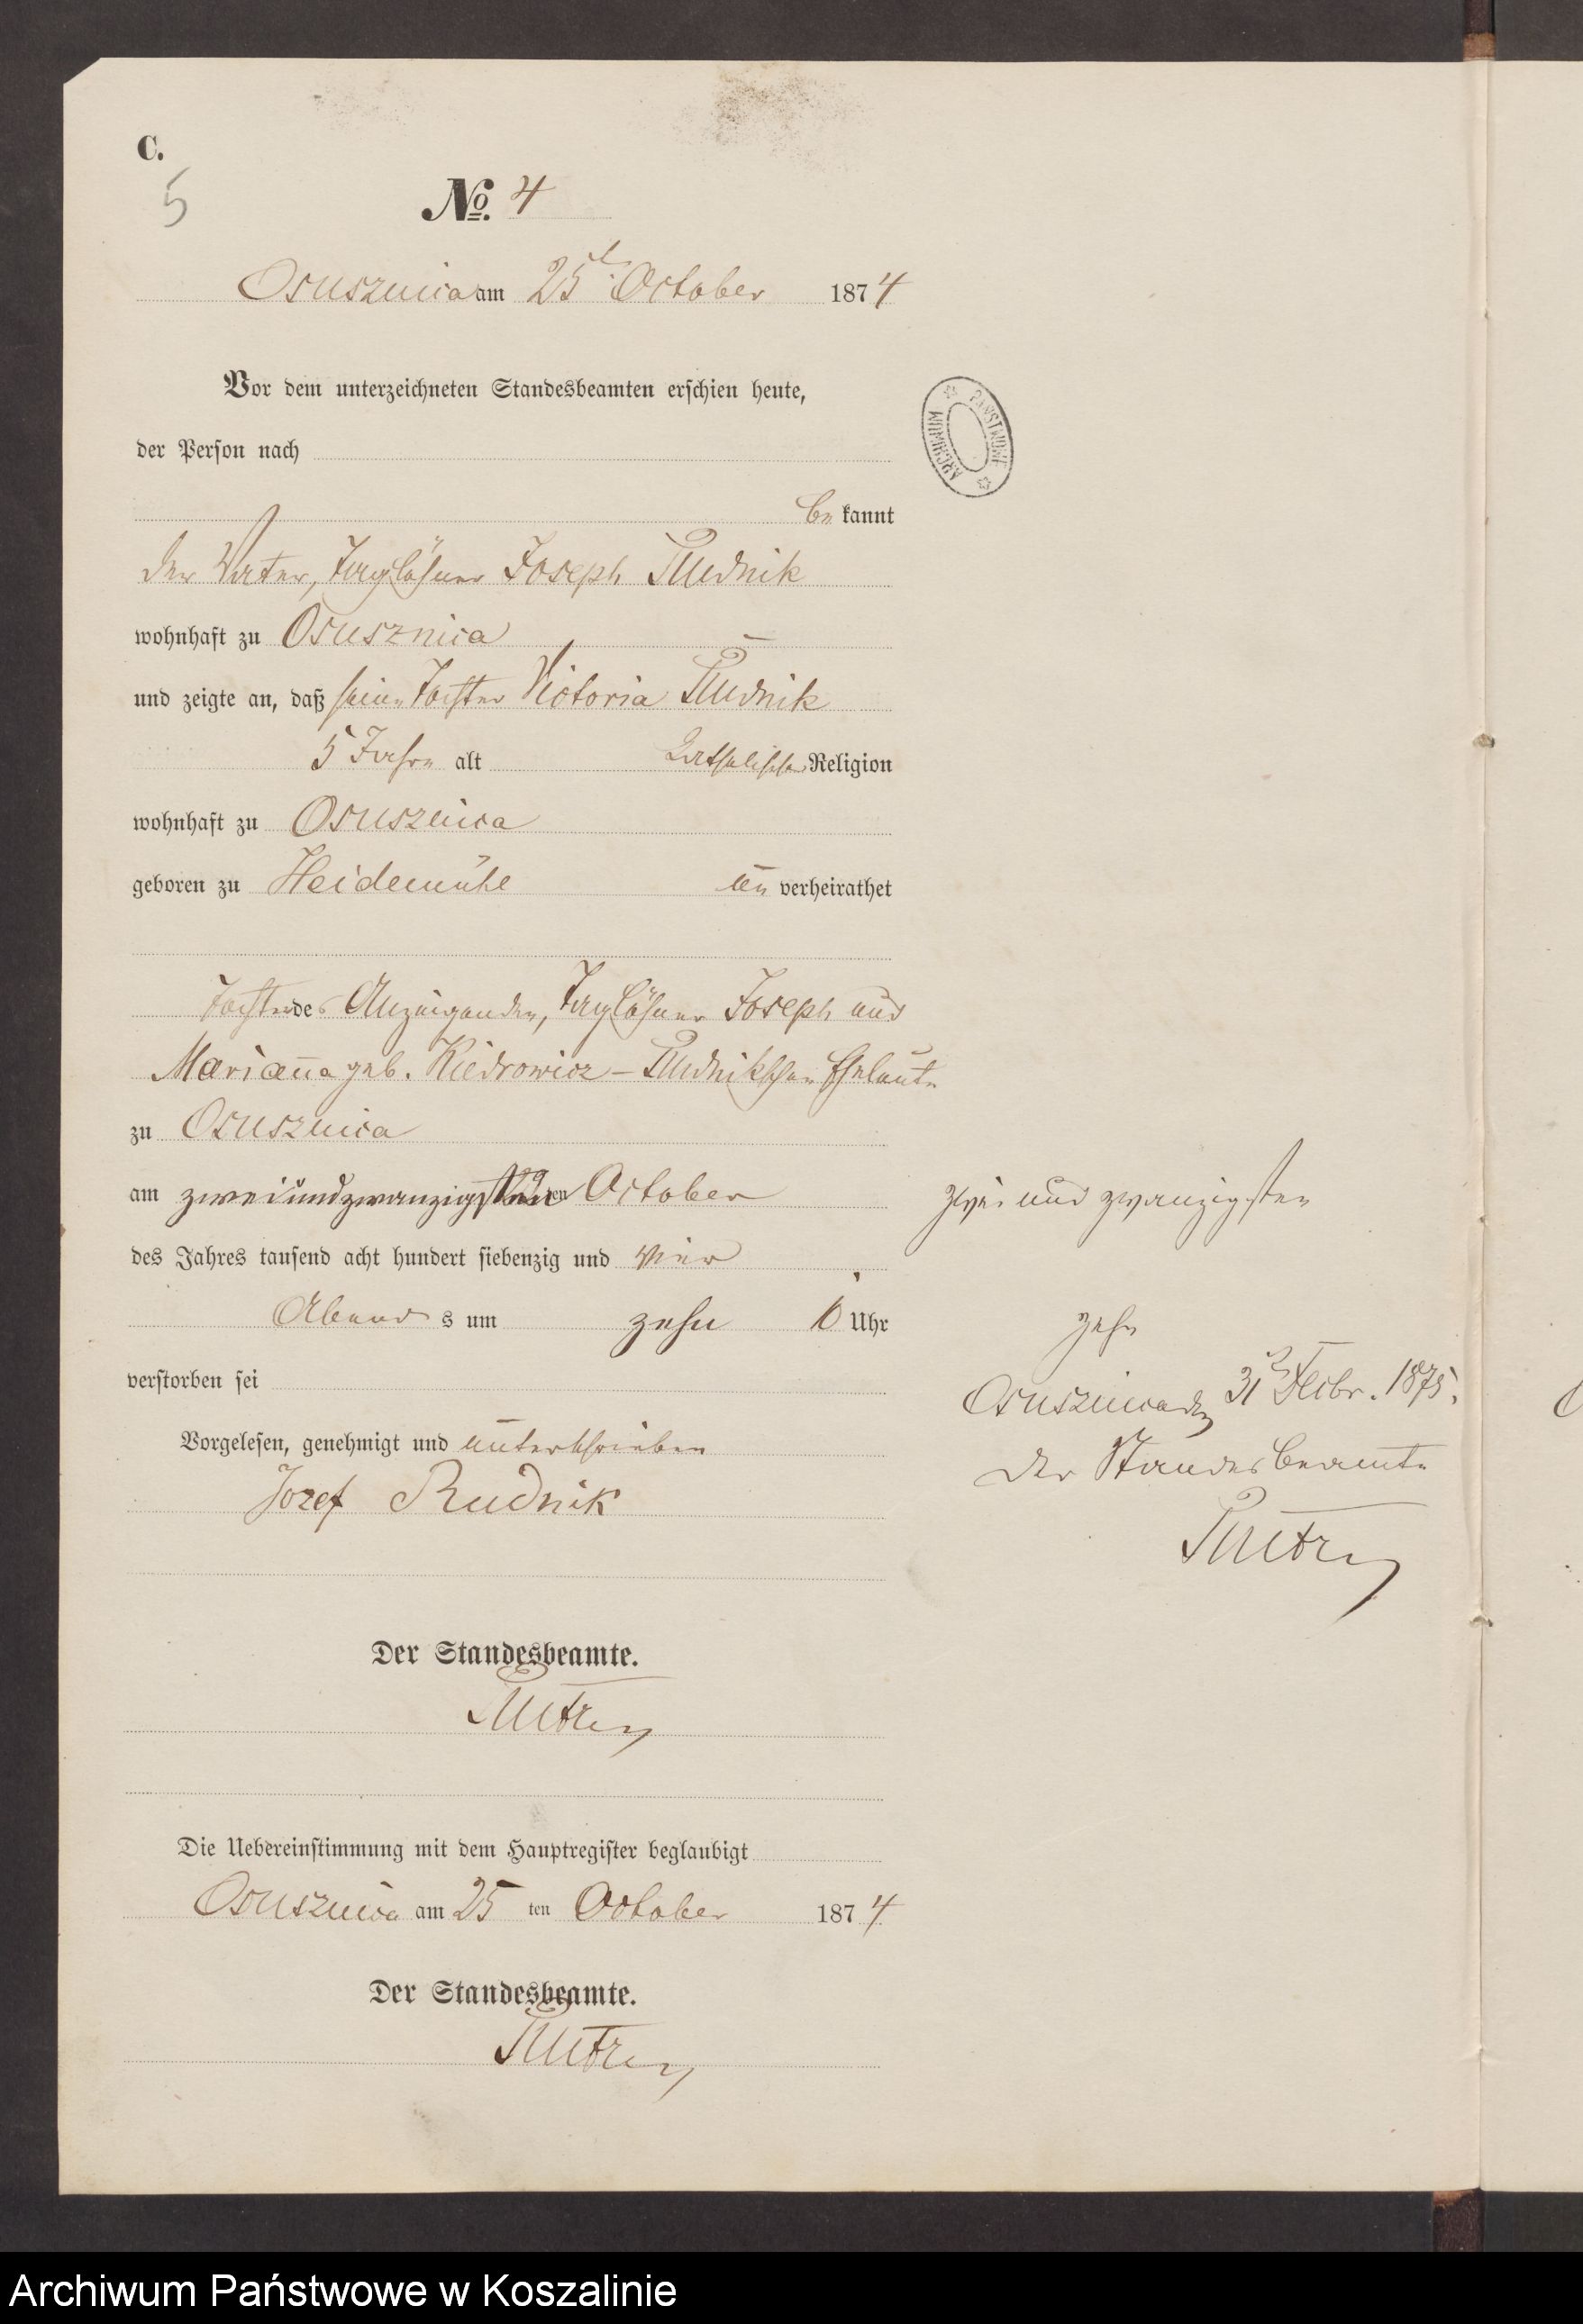 C.
5
No. 4
Osusznica am 25t October 1874
Vor dem unterzeichneten Standesbeamten erschien heute,
der Person nach
be kannt
der Vater, Taglöhner Joseph Rudnik
wohnhaft zu Osusznica
und zeigte an, daß seine Tochter Victoria Rudnik
5 Jahre alt katholischer Religion
wohnhaft zu Osusznica
geboren zu Heidemühl un verheirathet
Tochter des Anzeigenden, Taglöhner Joseph und
Marianna geb. Kiedrowicz - Rudnikschen Eheleute
zu Osusznica
am zweiundzwanzigsten October
zwei und zwanzigsten
des Jahres tausend acht hundert siebenzig und vier
Abend s um zehn Uhr
zehn
verstorben sei
Osusznica den 31 Decbr. 1875.
Vorgelesen, genehmigt und unterschrieben
Der Standesbeamte
Jozef Rudnik
Der Standesbeamte.
Die Uebereinstimmung mit dem Hauptregister beglaubigt
Osusznica am 25 ten October 1874
Der Standesbeamte.
ARCHIWUM PAŃSTWOWE
Archiwum Państwowe w Koszalinie